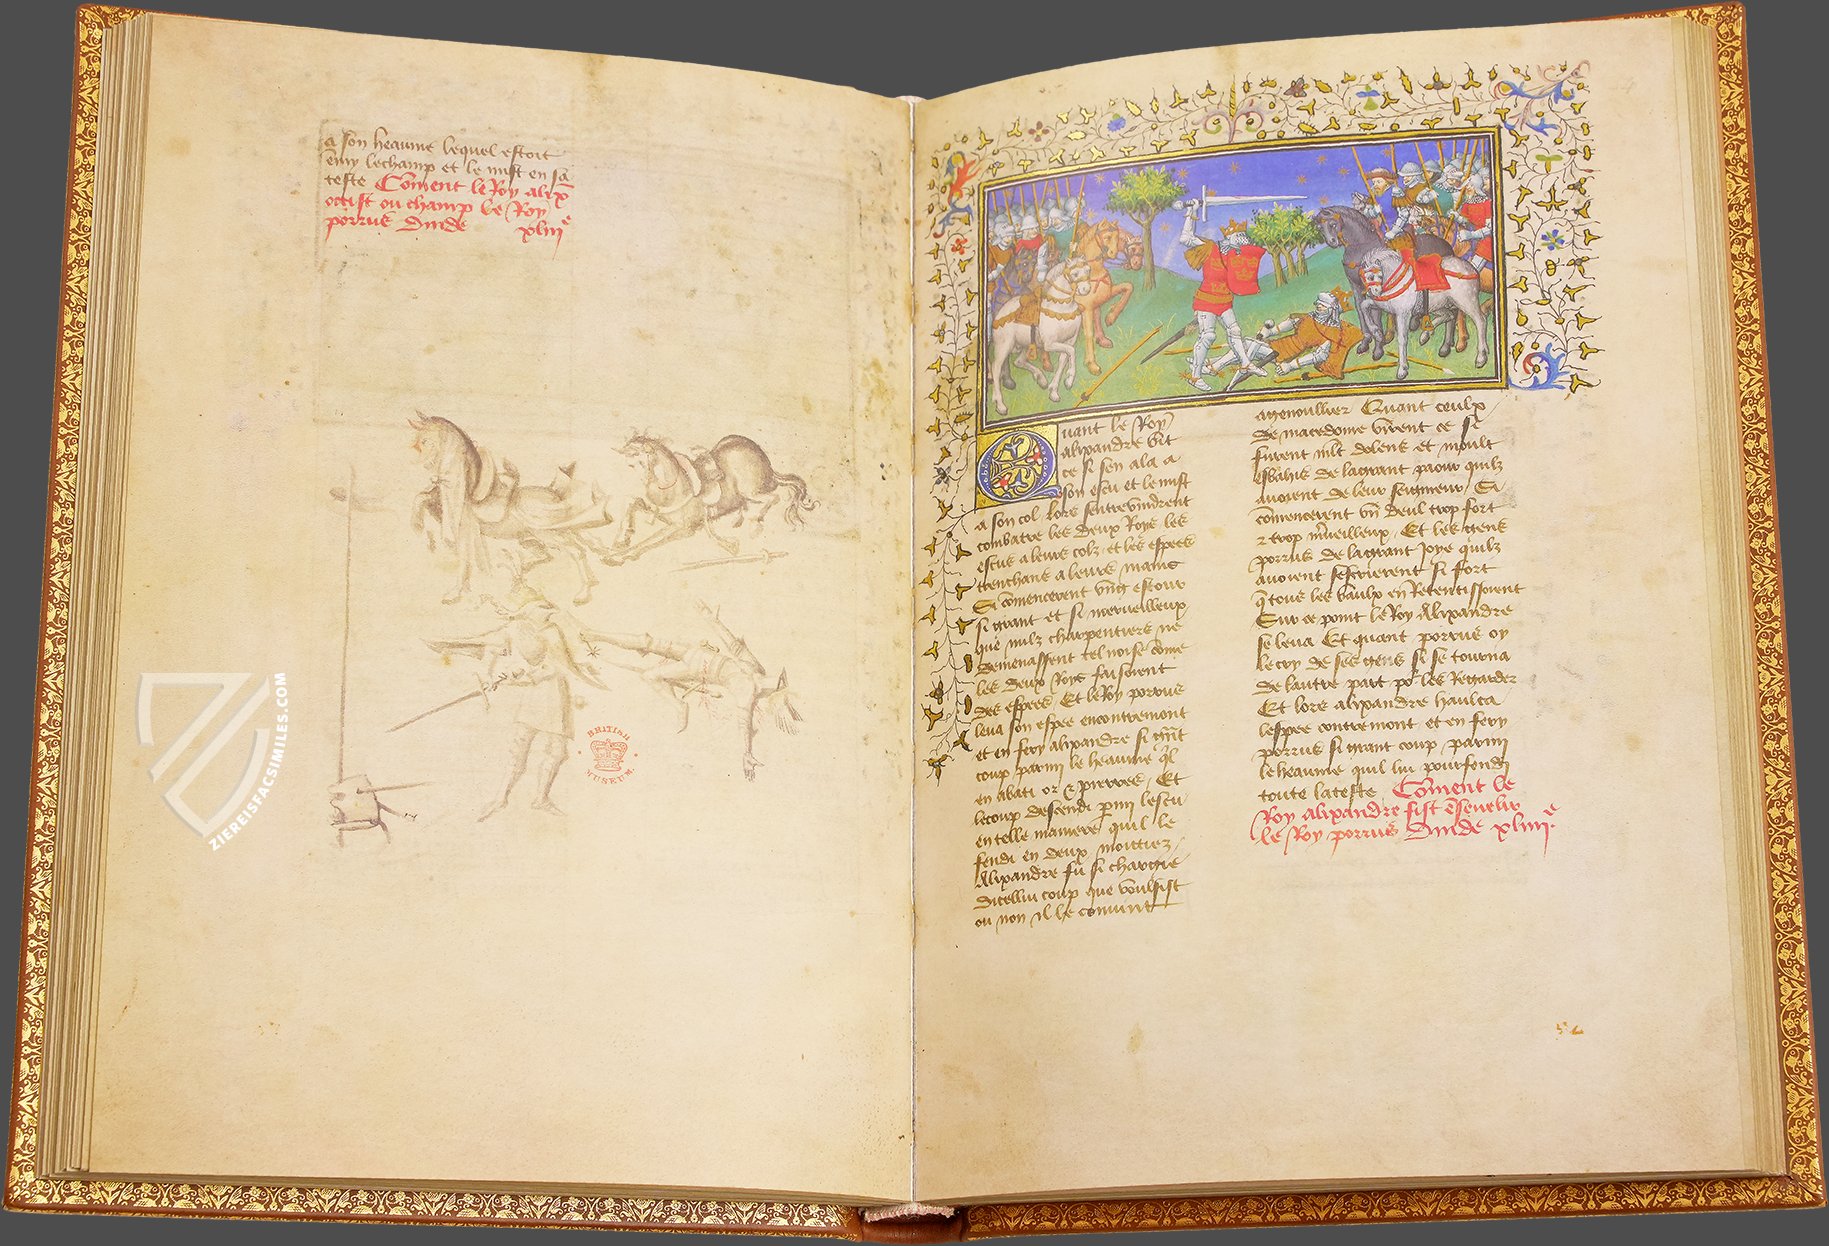 a son heaume lequel estoit
emy le champ et le mist en sa
teste Coment le Roy alix
occist ou champ le Roy
porrus dinde xliiiᵉ
BRITISH
MUSEUM
ZIEREISFACSIMILES.COM
Quant le Roy
alixandre vit
ce si sen ala a
son escu et le mist
a son col lors sentrevindrent
combatre les deux Roys les
escus a leurs colz et les espees
trenchans a leurs mains
Si comencerent vng estour
si grant et si merueilleux
que milz charpentiers ne
demenassent tel noise come
les deux Roys faisoient
des espees Et le Roy porrus
leua son espee encontremont
et en fery alixandre si grant
coup parmi le heaume ql
en abati or et pierres Et
le coup descendi pmi lescu
en telle maniere quil le
fendi en deux moittiez
Alixandre fu si chargie
dicellui coup que voulsist
ou non il le conuint
agenoullier Quant ceulx
de macedome virent ce si
furent mlt dolens et moult
esbahis de la grant paour quilz
auoient de leur seigneur Si
comencerent vn deul trop fort
et trop merueilleux Et les gens
porrus de la grant Joye quilz
auoient sescrierent si fort
q tous les vaulx en Retentissoient
Sur ce point le Roy Alixandre
se leua Et quant porrus oy
le cry de ses gens si se tourna
de lautre part po les Regarder
Et lors alixandre haulca
lespee contremont et en fery
porrus si grant coup parmi
le heaume quil lui pourfendi
toute la teste Coment le
Roy alixandre fist ensevelir
le Roy porrus dinde xliiiiᵉ